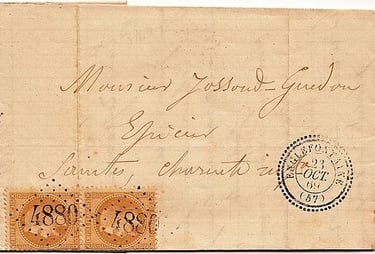 Monsieur Jossoud-Guedon
Epicier
Saintes, Charente inf
ENGLEFONTAINE
23
OCT.
69
(57)
4880
4880